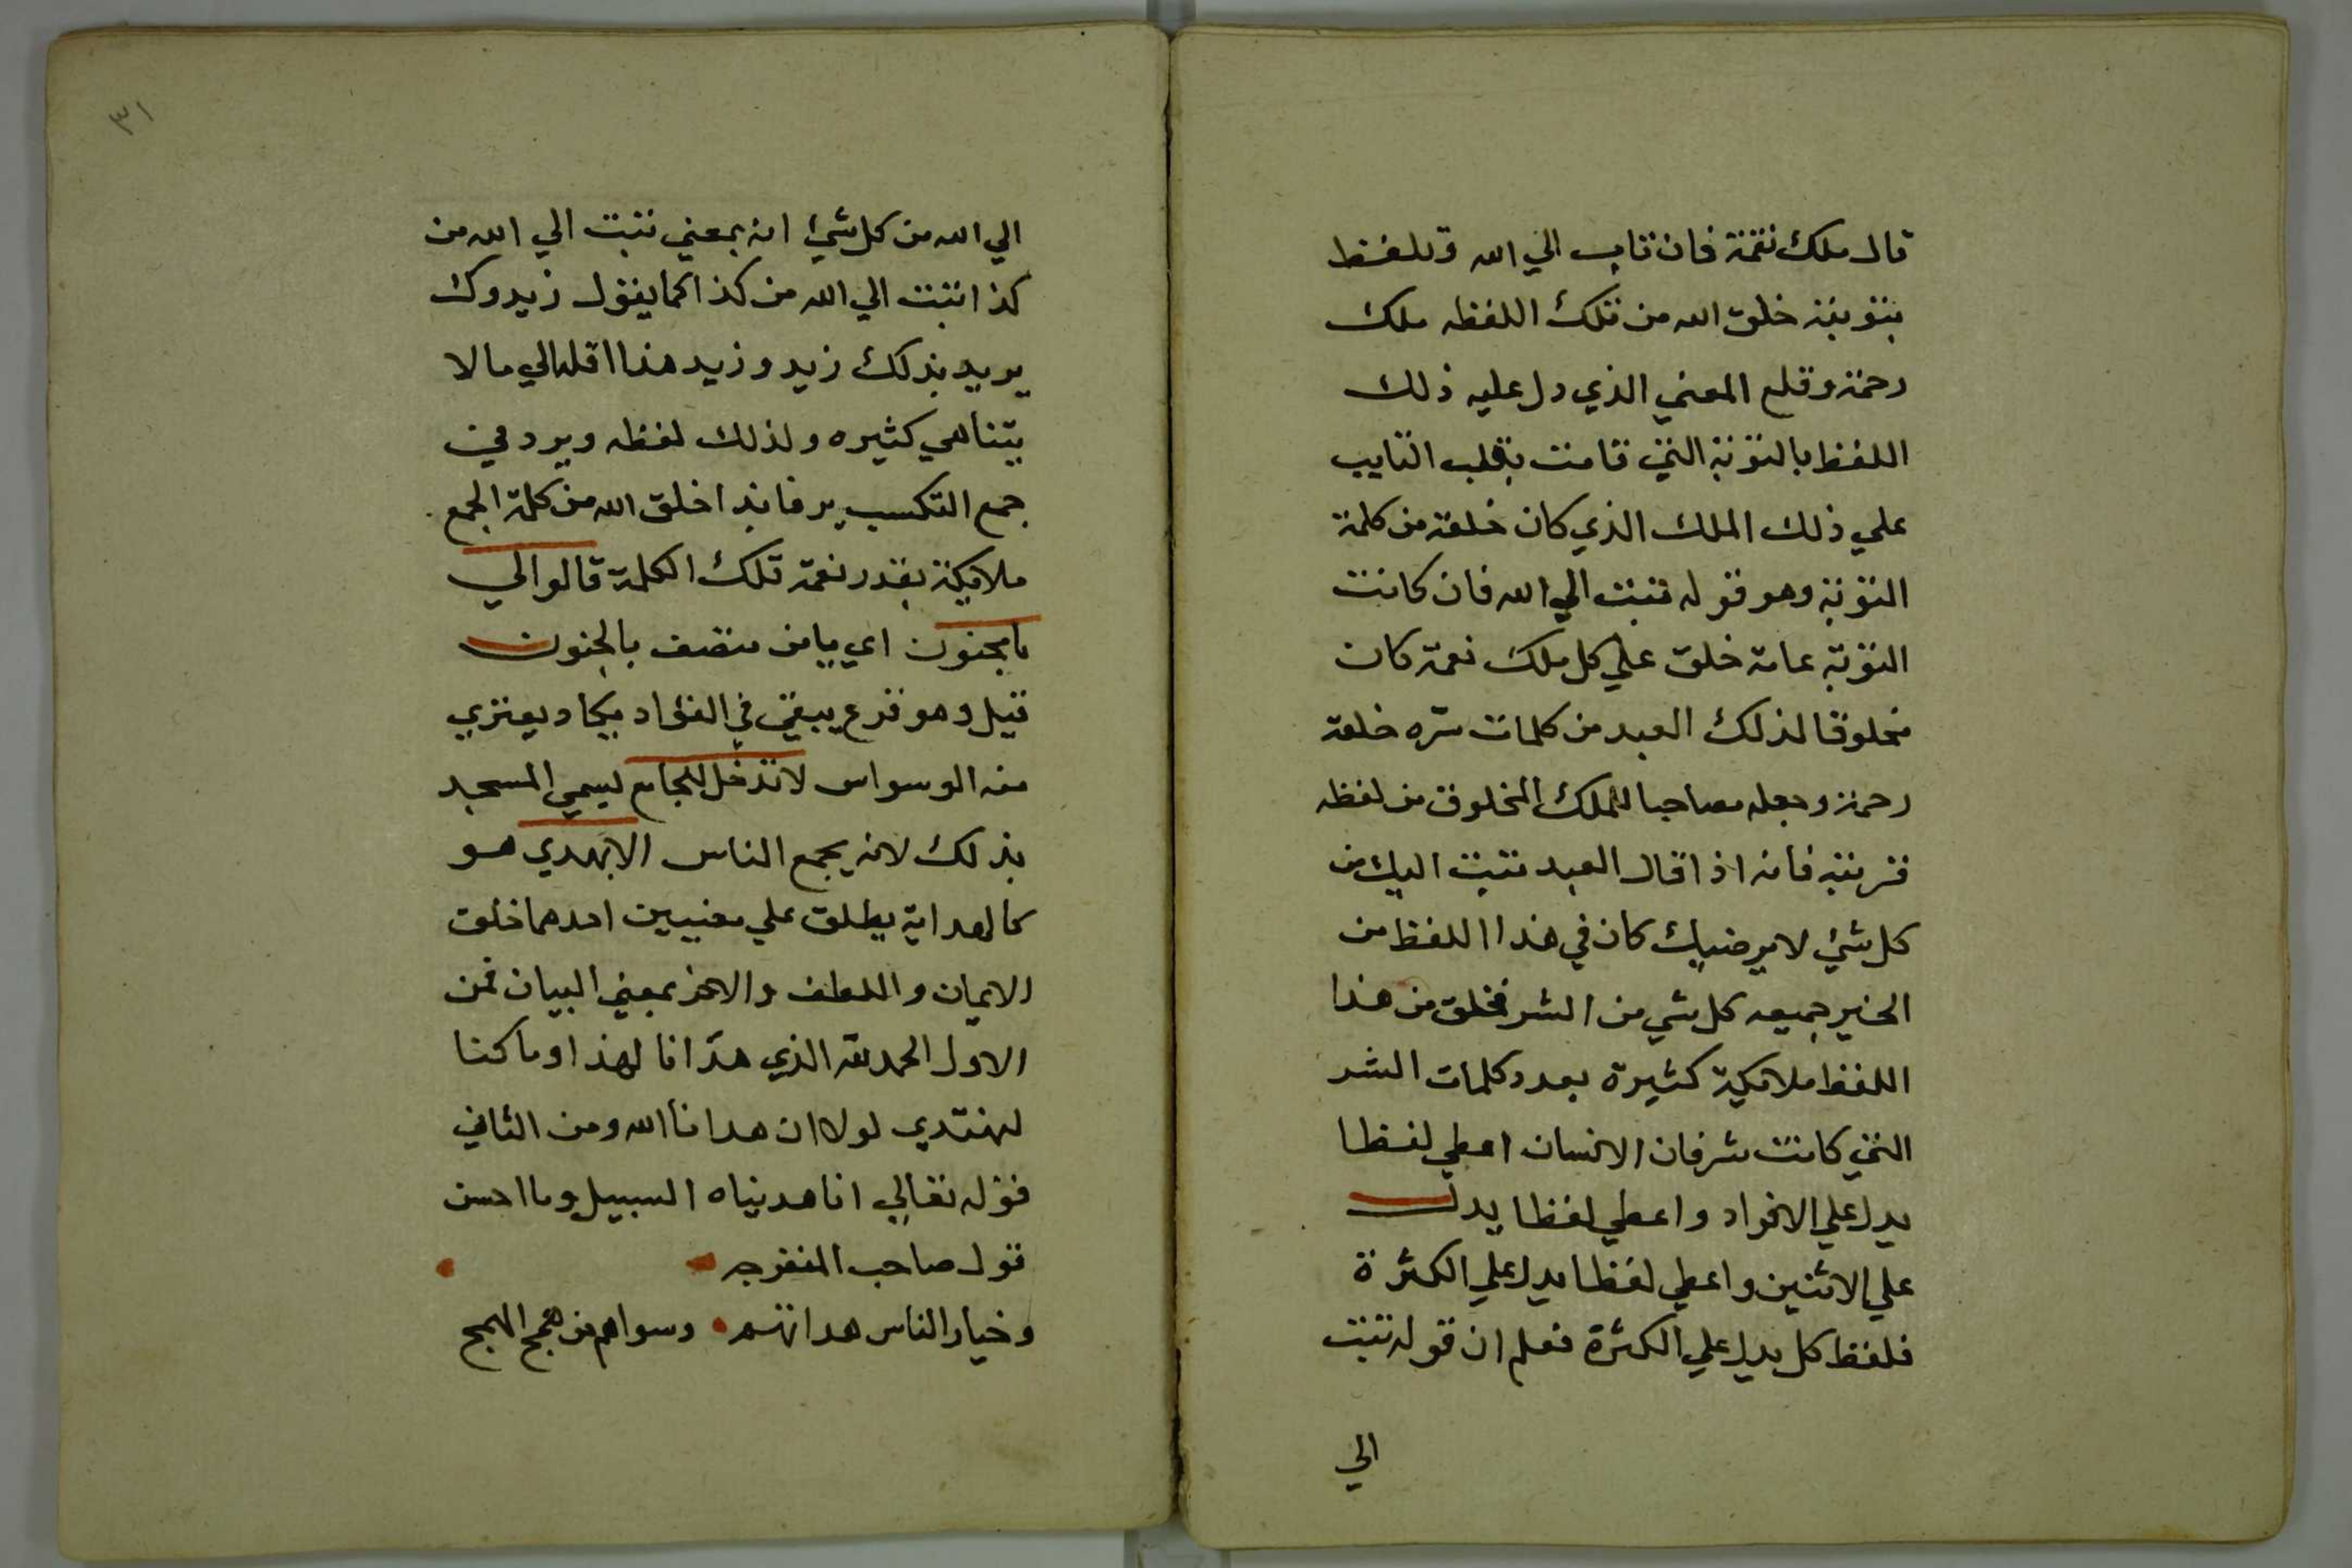 قال ملك نقمة فان تاب الي الله وتلفظ
بتوبته خلق الله من تلك اللفظه ملك
رحمة وقلع المعني الذي دل عليه ذلك
اللفظ بالتوبة التي قامت بقلب التايب
علي ذلك الملك الذي كان خلقه من كلمة
التوبة وهو قوله تبت الي الله فان كانت
التوبة عامة خلق علي كل ملك نعمة كان
مخلوقا لذلك العبد من كلمات شره خلقة
رحمة وجعله مصاحبا للملك المخلوق من لفظه
فانه اذا قال العبد تبت اليك من
كل شئ لا يرضيك كان في هذا اللفظ من
الخير جميعه كل شي من الشر فخلق من هذا
اللفظ ملايكة كثيرة بعدد كلمات الشر
التي كانت شر فان الانسان اعطي لفظا
يدل علي الافراد واعطي لفظا يدل
علي الاثنين واعطي لفظا يدل علي الكثرة
فلفظ كل يدل علي الكثرة فعلم ان قوله تبت
الي
٣١
الي الله من كل شئ انه بمعني تبت الي الله من
كذا تبت الي الله من كذا كما يقول زيدوك
يريد بذلك زيد وزيد هذا اقله الي ما لا
يتناهي كثيره ولذلك لفظه ويرد في
جمع التكسير فابدا خلق الله من كلمة الجمع
ملايكة بقدر نعمة تلك الكلمة قالوا لي
يا مجنون اي يا من متصف بالجنون
قيل وهو فزع يبقي في الفؤاد يكاد يعتري
منه الوسواس لا تدخل للجامع ليسمي المسجد
بذلك لانه يجمع الناس الا بهدي هو
كالهداية يطلق علي معنيين احدهما خلق
الايمان واللطف والاخر بمعني البيان فمن
الاول الحمد لله الذي هدانا لهذا وما كنا
لنهتدي لولا ان هدانا الله ومن الثاني
قوله تعالي انا هديناه السبيل وما احسن
قول صاحب المنفرجه
وخيار الناس هداتهم وسواهم من همج الهمج